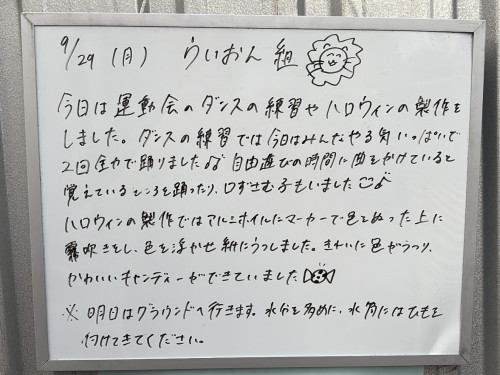 9/29 (月) らいおん 組
今日は運動会のダンスの練習やハロウィンの製作を
しました。ダンスの練習では今日はみんなやる気いっぱいで
2回全力で踊りました♪ 自由遊びの時間に曲をかけていると
覚えているところを踊ったり、口ずさむ子もいました♪
ハロウィンの製作ではアルミホイルにマーカーで色をぬった上に
霧吹きをし、色を浮かせ紙にうつしました。きれいに色がうつり、
かわいいキャンディーができていました
※ 明日はグラウンドへ行きます。水分を多めに、水筒にはひもを
付けてきてください。